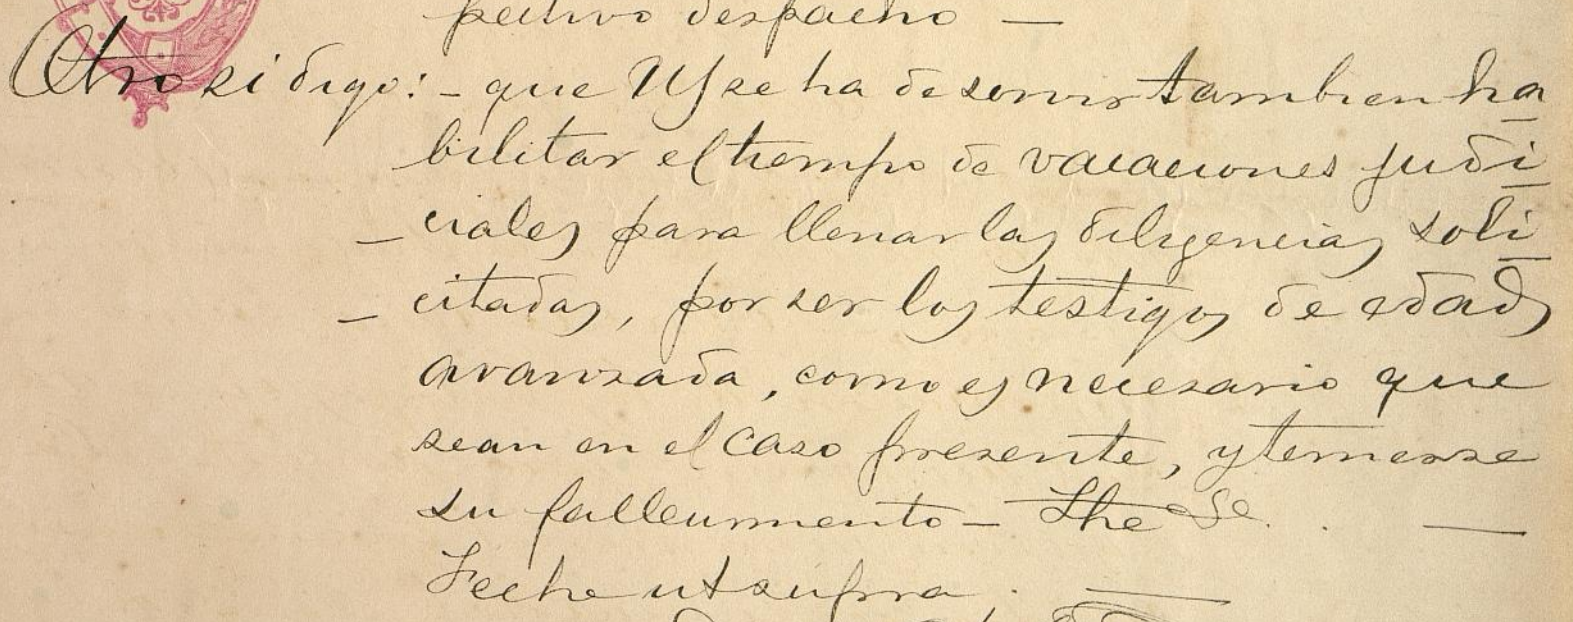 pectivo despacho —
Otro si digo: - que US se ha de servir tambien ha
bilitar el tiempo de vacaciones judi
- ciales para llenar las diligencias soli
- citadas, por ser los testigos de edad
avanzada, como es necesario que
sean en el caso presente, y temerse
su fallecimiento - —
Fecha ut supra. —